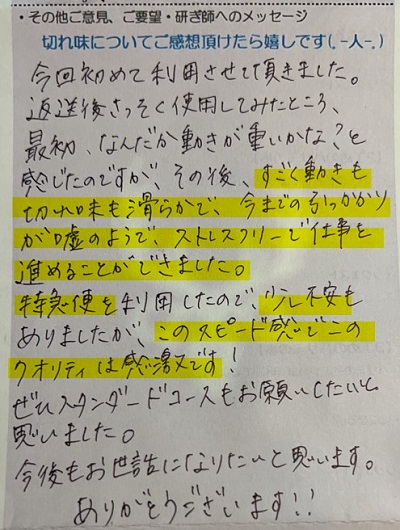 ・その他ご意見、ご要望・研ぎ師へのメッセージ
切れ味についてご感想頂けたら嬉しです(.-人-.)
今回初めて利用させて頂きました。
返送後さっそく使用してみたところ、
最初、なんだか動きが重いかな?と
感じたのですが、その後、すごく動きも
切れ味も滑らかで、今までの引っかかり
が嘘のようで、ストレスフリーで仕事を
進めることができました。
特急便を利用したので、少し不安も
ありましたが、このスピード感でこの
クオリティは感激です!
ぜひスタンダードコースもお願いしたいと
思いました。
今後もお世話になりたいと思います。
ありがとうございます!!